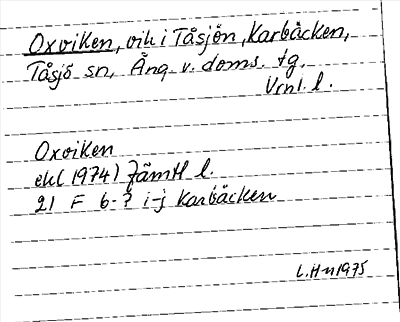 Oxviken, vik i Tåsjön, Karbäcken,
Tåsjö sn, Ång. v. doms. tg.
Vrnl. l.
Oxviken
ek (1974) Jämtl l.
21 F 6-7 i-j Karbäcken
L.H-n 1975